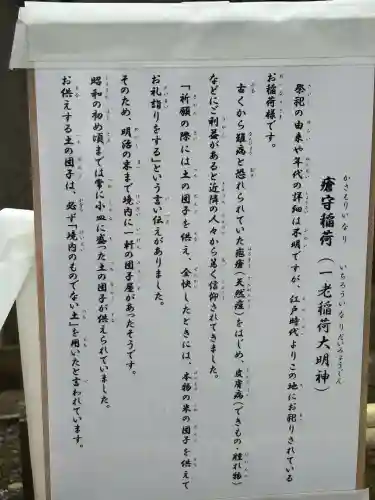 瘡守稲荷（一老稲荷大明神）
祭祀の由来や年代の詳細は不明ですが、江戸時代よりこの地にお祀りされている
お稲荷様です。
古くから難病と恐れられていた疱瘡（天然痘）をはじめ、皮膚病（できもの・腫れ物）
などにご利益があると近隣の人々から篤く信仰されてきました。
「祈願の際には土の団子を供え、全快したときには、本物の米の団子を供えて
お礼詣りをする」という言い伝えがありました。
そのため、明治の末まで境内に一軒の団子屋があったそうです。
昭和の初め頃までは常に小皿に盛った土の団子が供えられていました。
お供えする土の団子は、必ず「境内のものでない土」を用いたと言われています。